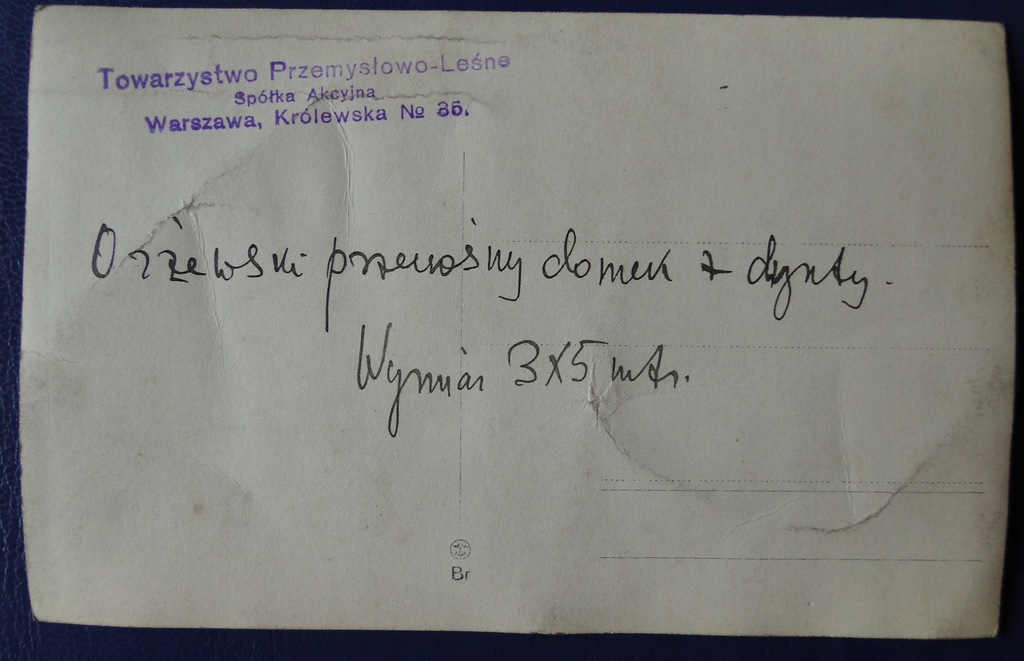 Towarzystwo Przemysłowo-Leśne
Spółka Akcyjna
Warszawa, Królewska № 35.
Orżewski przenośny domek z dykty.
Wymiar 3x5 mtr.
Br